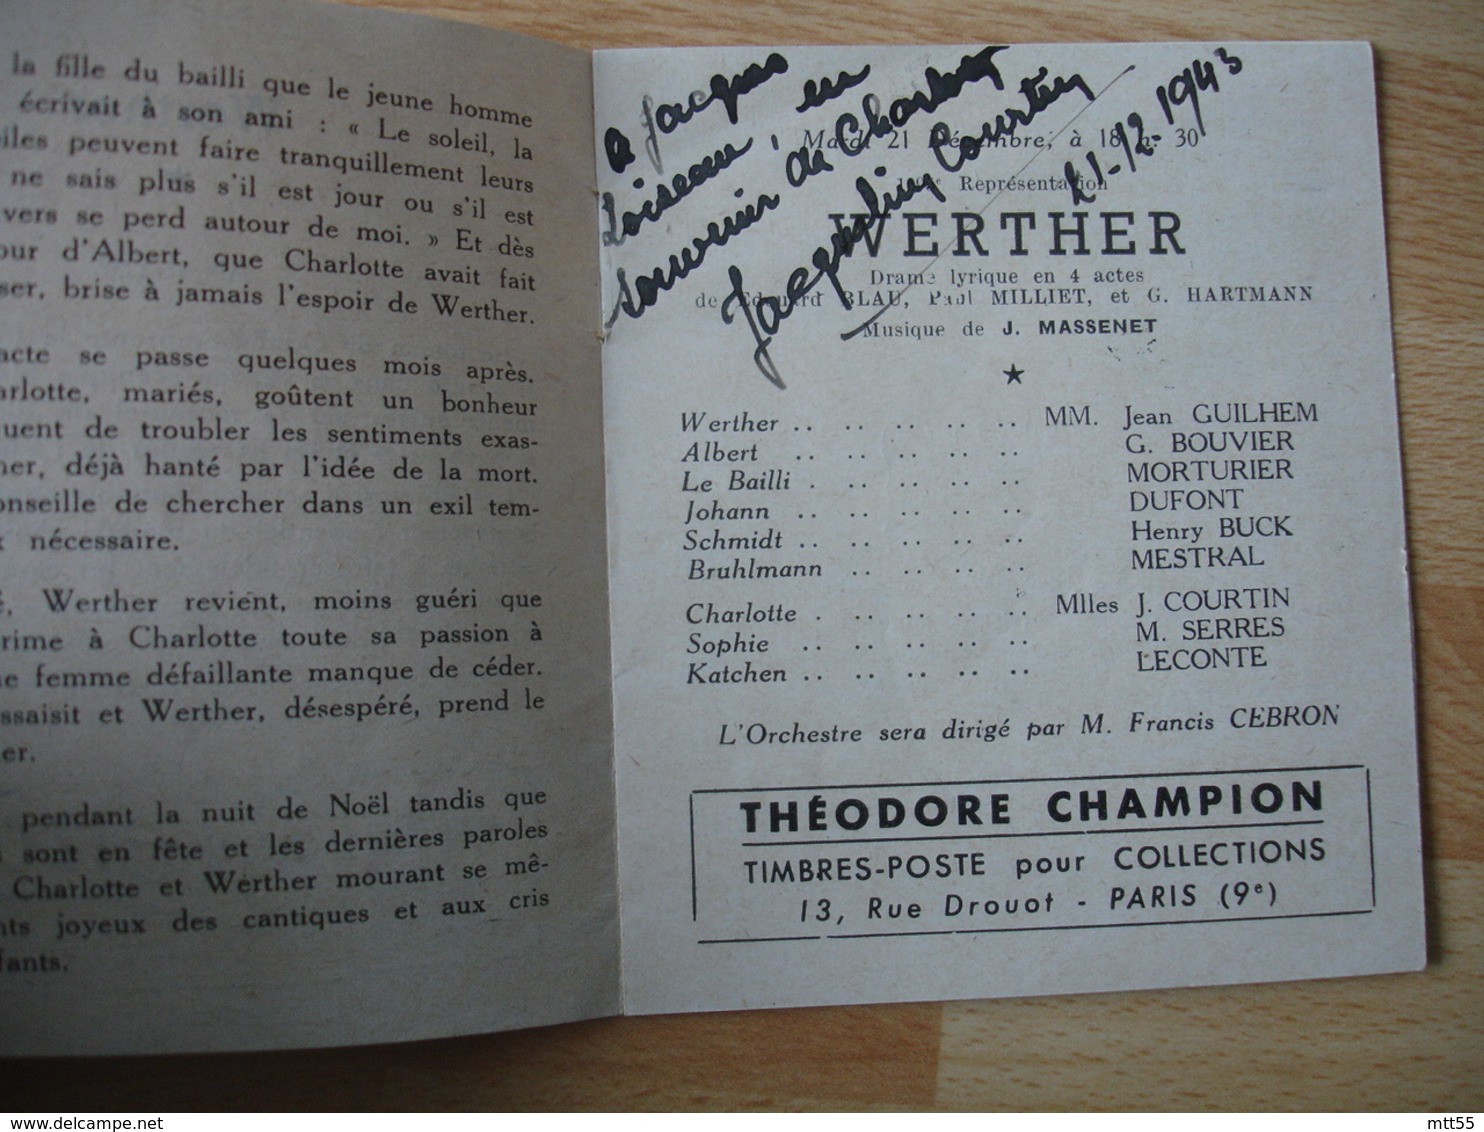 la fille du bailli que le jeune homme
écrivait à son ami : « Le soleil, la
iles peuvent faire tranquillement leurs
ne sais plus s'il est jour ou s'il est
vers se perd autour de moi. » Et dès
our d'Albert, que Charlotte avait fait
ser, brise à jamais l'espoir de Werther.
acte se passe quelques mois après.
arlotte, mariés, goûtent un bonheur
uent de troubler les sentiments exas-
her, déjà hanté par l'idée de la mort.
onseille de chercher dans un exil tem-
nécessaire.
Werther revient, moins guéri que
rime à Charlotte toute sa passion à
ne femme défaillante manque de céder.
ssaisit et Werther, désespéré, prend le
er.
pendant la nuit de Noël tandis que
sont en fête et les dernières paroles
Charlotte et Werther mourant se mê-
nts joyeux des cantiques et aux cris
fants.
a Jacques
Loiseau, en
souvenir du Charlotte
Jacqueline Courtin
21-12-1943
Mardi 21 Décembre, à 18 h. 30
Représentation
WERTHER
Drame lyrique en 4 actes
de Edouard BLAU, Paul MILLIET, et G. HARTMANN
Musique de J. MASSENET
Werther .. .. .. .. .. MM. Jean GUILHEM
Albert .. .. .. .. .. G. BOUVIER
Le Bailli . .. .. .. .. MORTURIER
Johann .. .. .. .. .. DUFONT
Schmidt .. .. .. .. .. Henry BUCK
Bruhlmann .. .. .. .. MESTRAL
Charlotte . .. .. .. .. Mlles J. COURTIN
Sophie .. .. .. .. .. M. SERRES
Katchen .. .. .. .. .. LECONTE
L'Orchestre sera dirigé par M. Francis CEBRON
THÉODORE CHAMPION
TIMBRES-POSTE pour COLLECTIONS
13, Rue Drouot - PARIS (9e)
mtt55